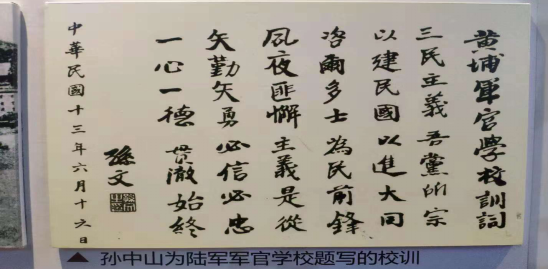 黄埔軍官學校訓詞
三民主義 吾黨所宗
以建民國 以進大同
咨爾多士 為民前鋒
夙夜匪懈 主義是從
矢勤矢勇 必信必忠
一心一德 貫澈始終
孫文
中華民國十三年六月十六日
▲ 孙中山为陆军军官学校题写的校训